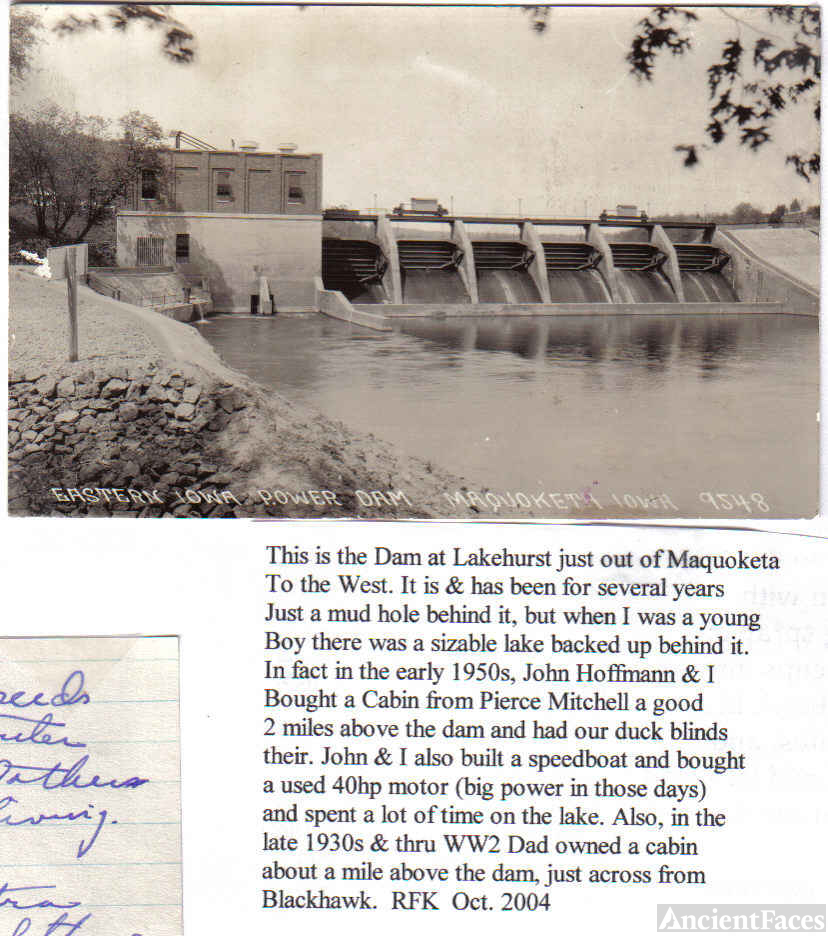 EASTERN IOWA POWER DAM MAQUOKETA IOWA 9248
This is the Dam at Lakehurst just out of Maquoketa
To the West. It is & has been for several years
Just a mud hole behind it, but when I was a young
Boy there was a sizable lake backed up behind it.
In fact in the early 1950s, John Hoffmann & I
Bought a Cabin from Pierce Mitchell a good
2 miles above the dam and had our duck blinds
their. John & I also built a speedboat and bought
a used 40hp motor (big power in those days)
and spent a lot of time on the lake. Also, in the
late 1930s & thru WW2 Dad owned a cabin
about a mile above the dam, just across from
Blackhawk. RFK Oct. 2004
living.
AncientFaces